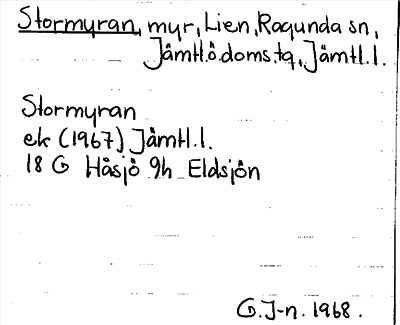 Stormyran, myr, Lien, Ragunda sn,
Jämtl.ö.doms.tg, Jämtl.l.
Stormyran
ek (1967) Jämtl.l.
18 G Håsjö 9h Eldsjön
G.J-n. 1968.